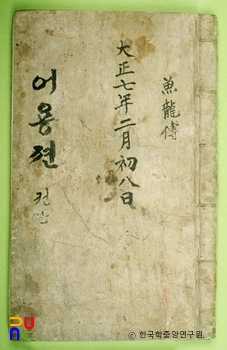 魚龍傳
大正七年二月初八日
어용젼
권단
© 한국학중앙연구원